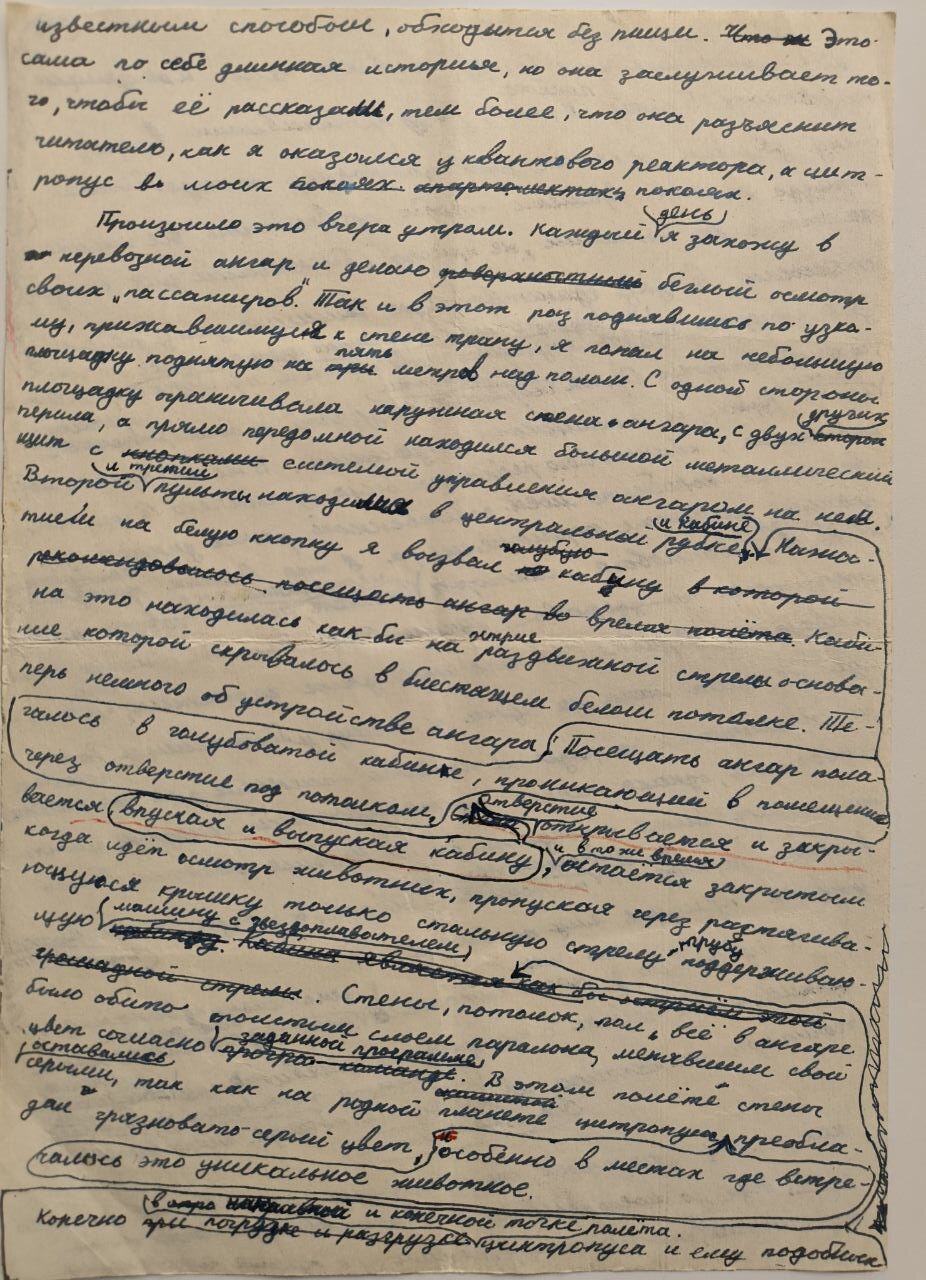 известным способом, обходится без пищи. Что ж Это
сама по себе длинная история, но она заслуживает то-
го, чтобы её рассказали, тем более, что она разъяснит
читателю, как я оказался у квантового реактора, а цит-
ропус в моих покоях. апартаментах, покоях.
день
Произошло это вчера утром. Каждый я захожу в
перевозной ангар и делаю поверхностный беглый осмотр
своих „пассажиров". Так и в этот раз поднявшись по узко-
му, прижавшимуся к стене трапу, я попал на небольшую
пять
площадку поднятую на три метров над полом. С одной стороны
площадку ограничивала наружная стена ангара, с двух сторон
других
перила, а прямо передомной находился большой металлический
щит с кнопками системой управления ангаром на нём.
и третий
Второй пульты находились в центральный рубке,
и кабине
Нажа-
тием на белую кнопку я вызвал голубую кабину в которой
рекомендовалось посещать ангар во время полёта. Каби-
на это находилась как бы на острие раздвижной стрелы основа-
ние которой скрывалось в блестящем белом потолке. Те-
перь немного об устройстве ангара. Посещать ангар пола-
галось в голубоватой кабинке, проникающий в помещение
через отверстие под потолком,
отверстие
открывается и закры-
вается впуская и выпуская кабину,
и в то же время
остаётся закрытым
когда идёт осмотр животных, пропуская через растягива-
ющуюся крышку только стальную стрелу трубу поддерживаю-
щую машину с звездоплавателем
кабинку. Кабина является как бы остриём этой
громадной стрелы. Стены, потолок, пол, всё в ангаре
было обито толстым слоем паралона, менявшим свой
цвет согласно заданной программе
команде. В этом полёте стены
оставались
серыми, так как на родной планете цитропуса преобла-
дал грязновато-серый цвет, особенно в местах где встре-
чалось это уникальное животное.
в начальной и конечной точке полёта.
Конечно при погрузке и разгрузке цинтропуса и ему подобных